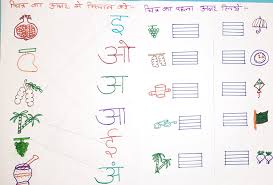 चित्र का अक्षर से मिलान करो:-
चित्र का पहला अक्षर लिखो:-
इ
ओ
अ
आ
ई
अं